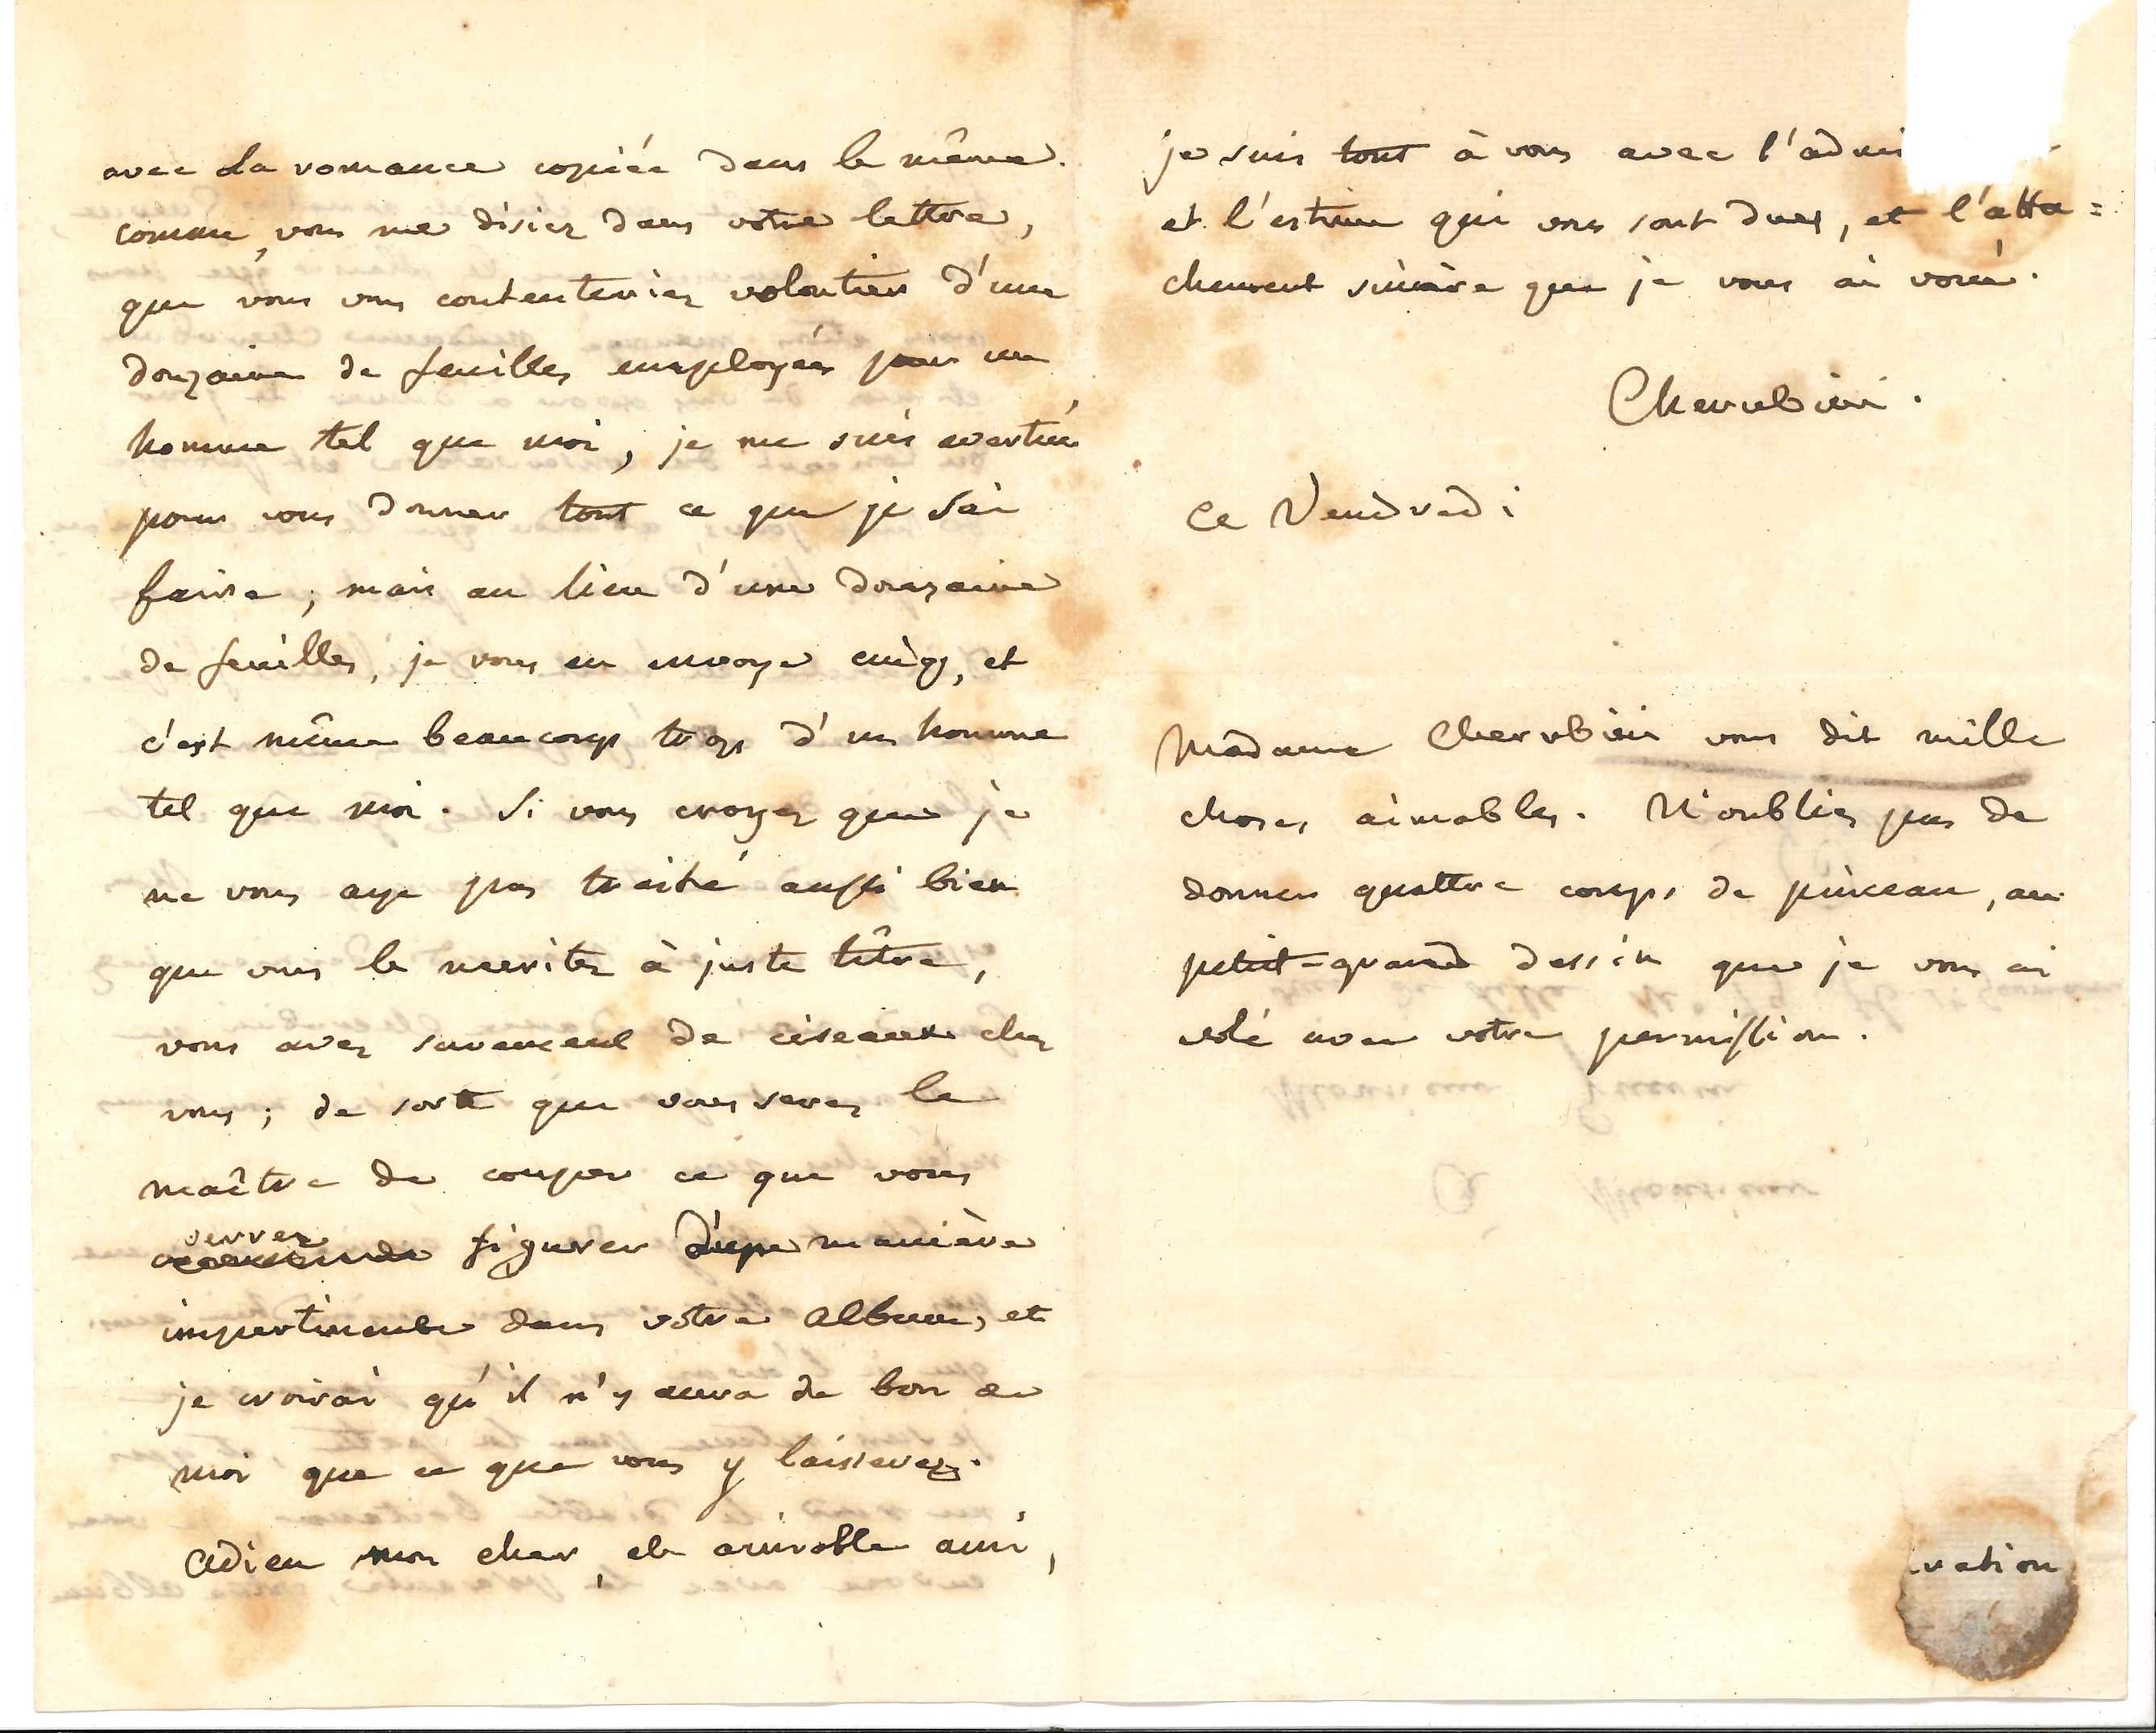 avec la romance copiée dans le même.
comme vous me disiez dans votre lettre,
que vous vous contenteriez volontiers d'une
douzaine de feuilles employées par un
homme tel que moi, je me suis evertué
pour vous donner tout ce que je sai
faire; mais au lieu d'une douzaine
de feuilles, je vous en envoye cinq, et
c'est même beaucoup trop d'un homme
tel que moi. Si vous croyez que je
ne vous aye pas traité aussi bien
que vous le meritez à juste tître,
vous avez surement de ciseaux chez
vous; de sorte que vous serez le
maître de couper ce que vous
verrez
figurer d'une manière
impertinente dans votre album, et
je croirai qu'il n'y aura de bon de
moi que ce que vous y laisserez.
Adieu mon cher et aimable ami,
je suis tout à vous avec l'admi
et l'estime qui vous sont dues, et l'atta=
chement sincère que je vous ai voué.
Cherubini.
Ce Vendredi
Madame Cherubini vous dit mille
choses aimables. N'oubliez pas de
donner quattre coups de pinceau, au
petit-grand dessin que je vous ai
volé avec votre permission.
ration